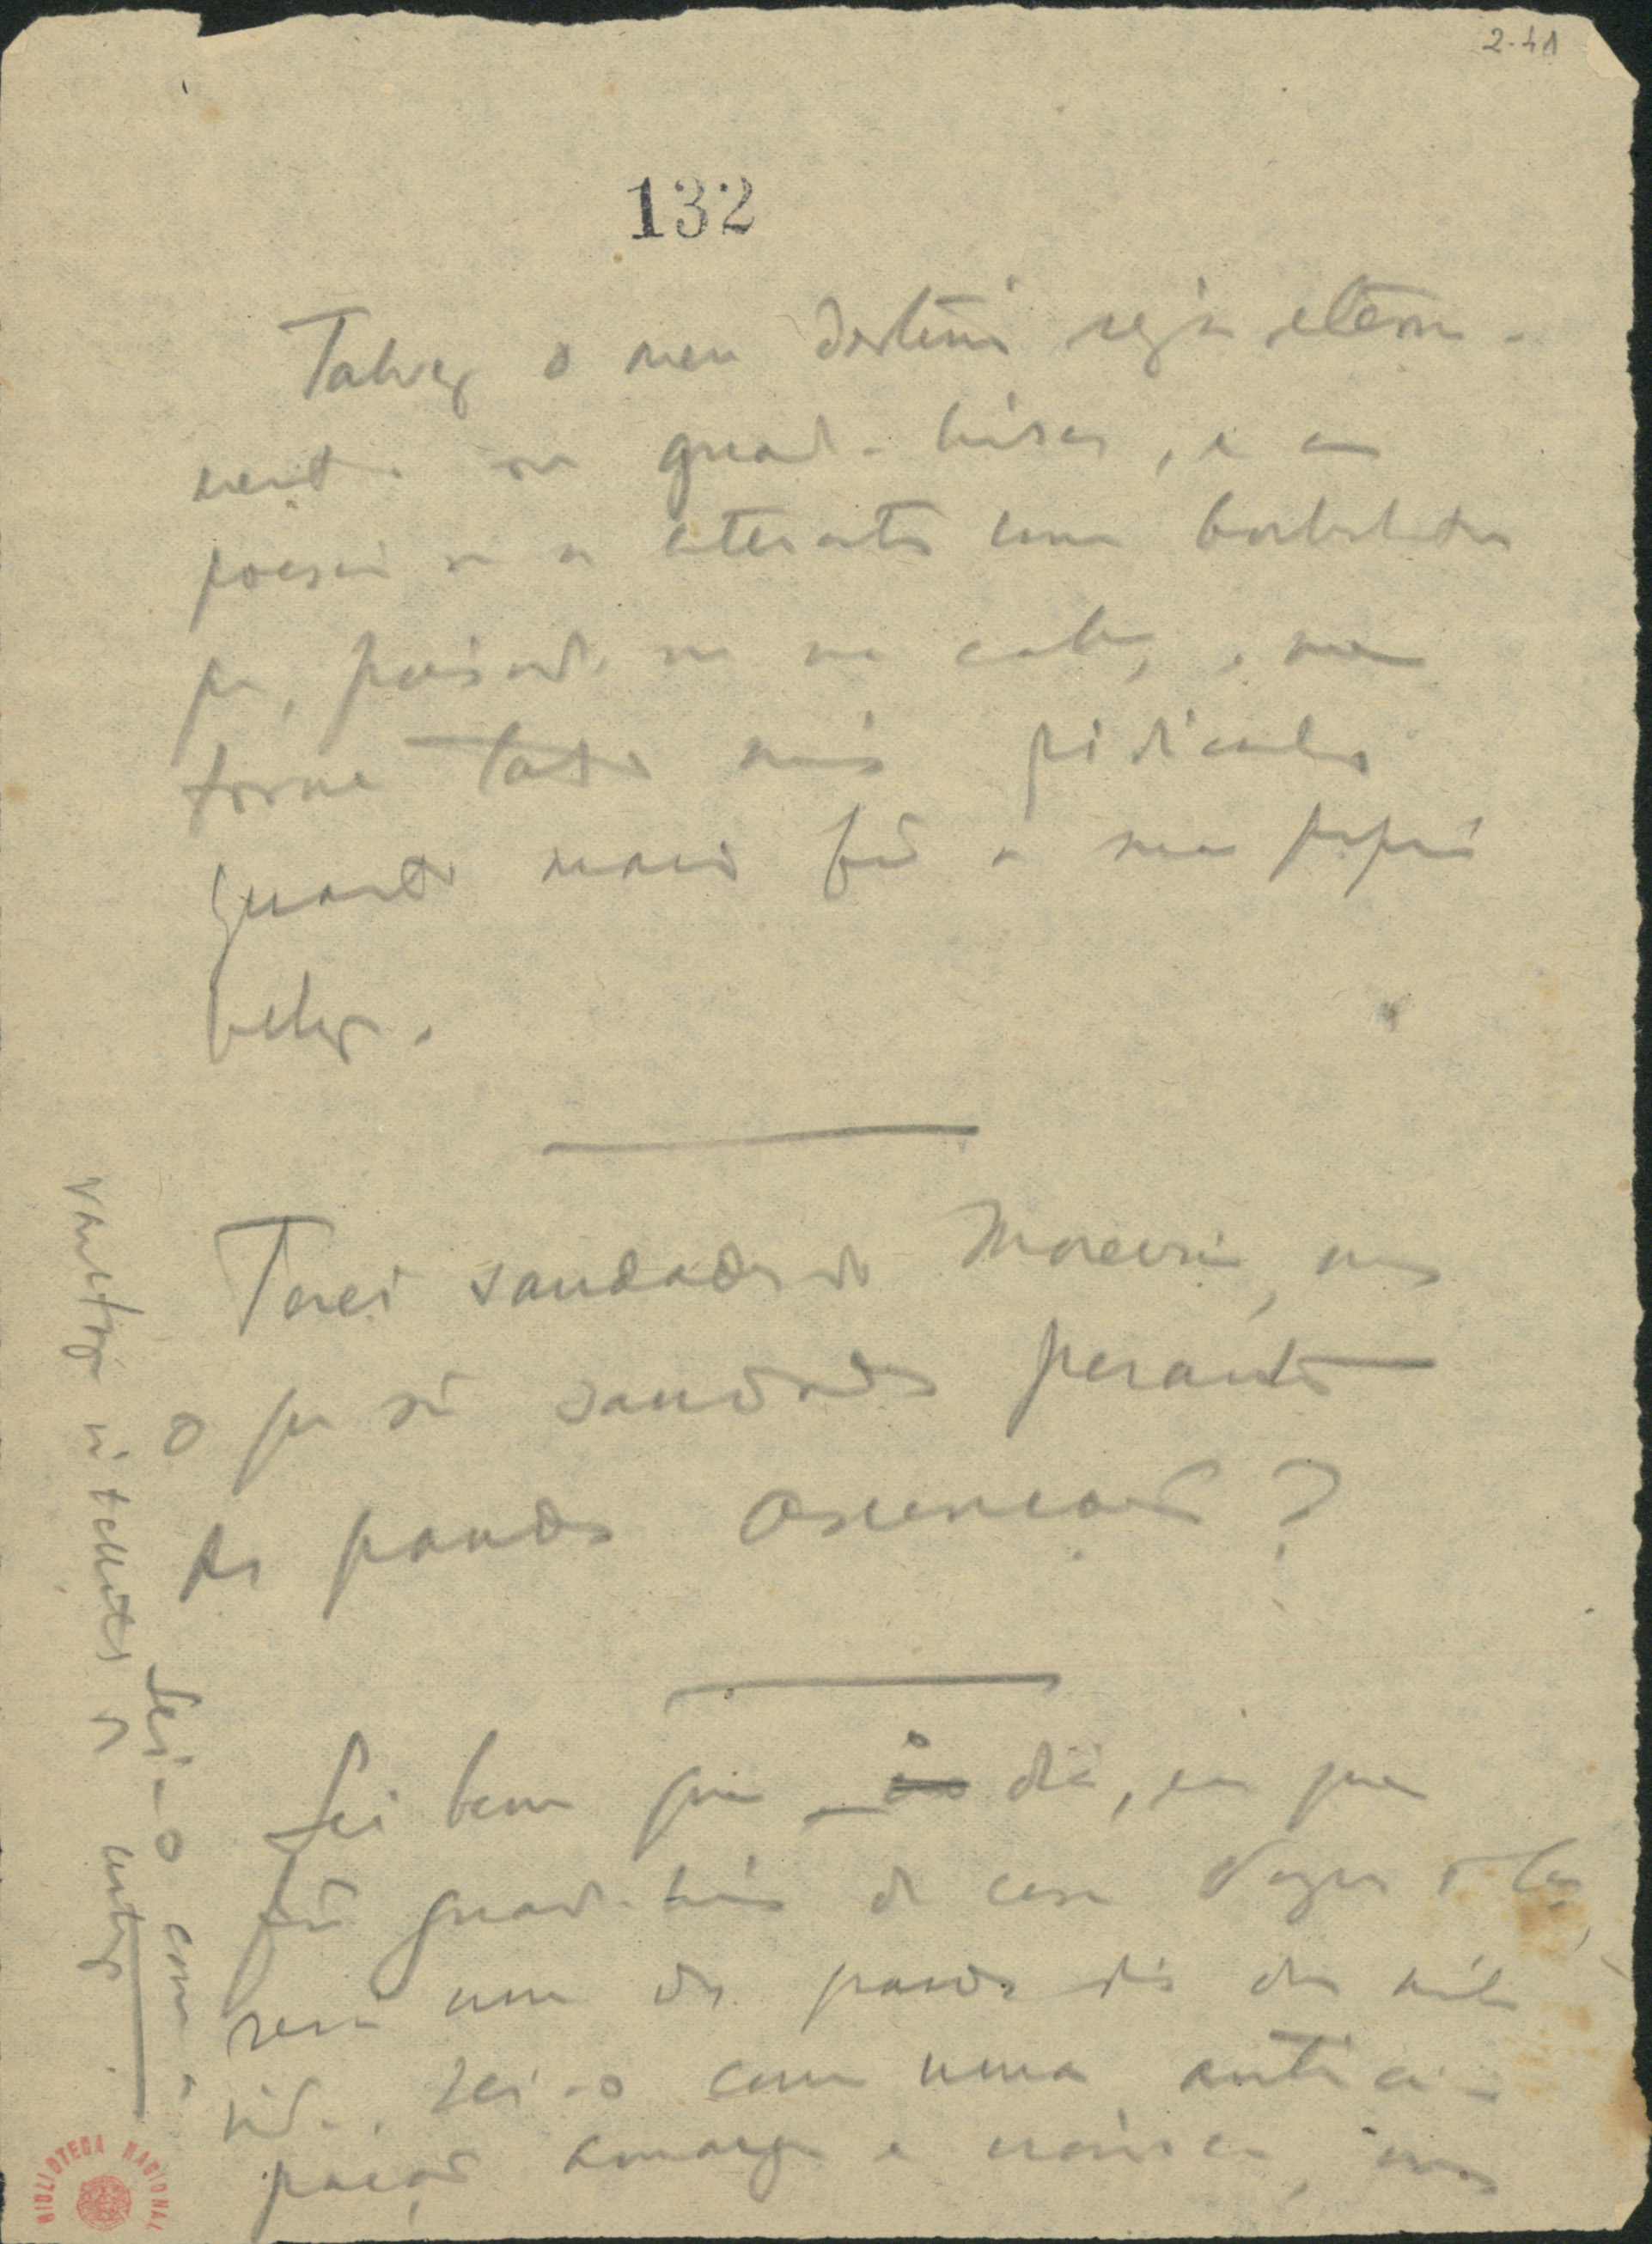 2-41
132
Talvez o meu destino seja eterna-
mente ser guarda-livros, e a
poesia ou a literatura uma borboleta
que, poisando-me na cabeça, me
torne tanto mais ridiculo
quanto maior fôr a sua propria
belleza.
Terei saudades do Moreira, mas
o que são saudades perante
as grandes ascensões?
Sei bem que o dia, em que
fôr guarda-livros da casa Vasques e Ca,
será um dos grandes dias da minha
vida. Sei-o com uma anteci-
pação amarga e ironica, mas
Sei-o com a
vantagem intellectual da certeza.
BIBLIOTECA NACIONAL